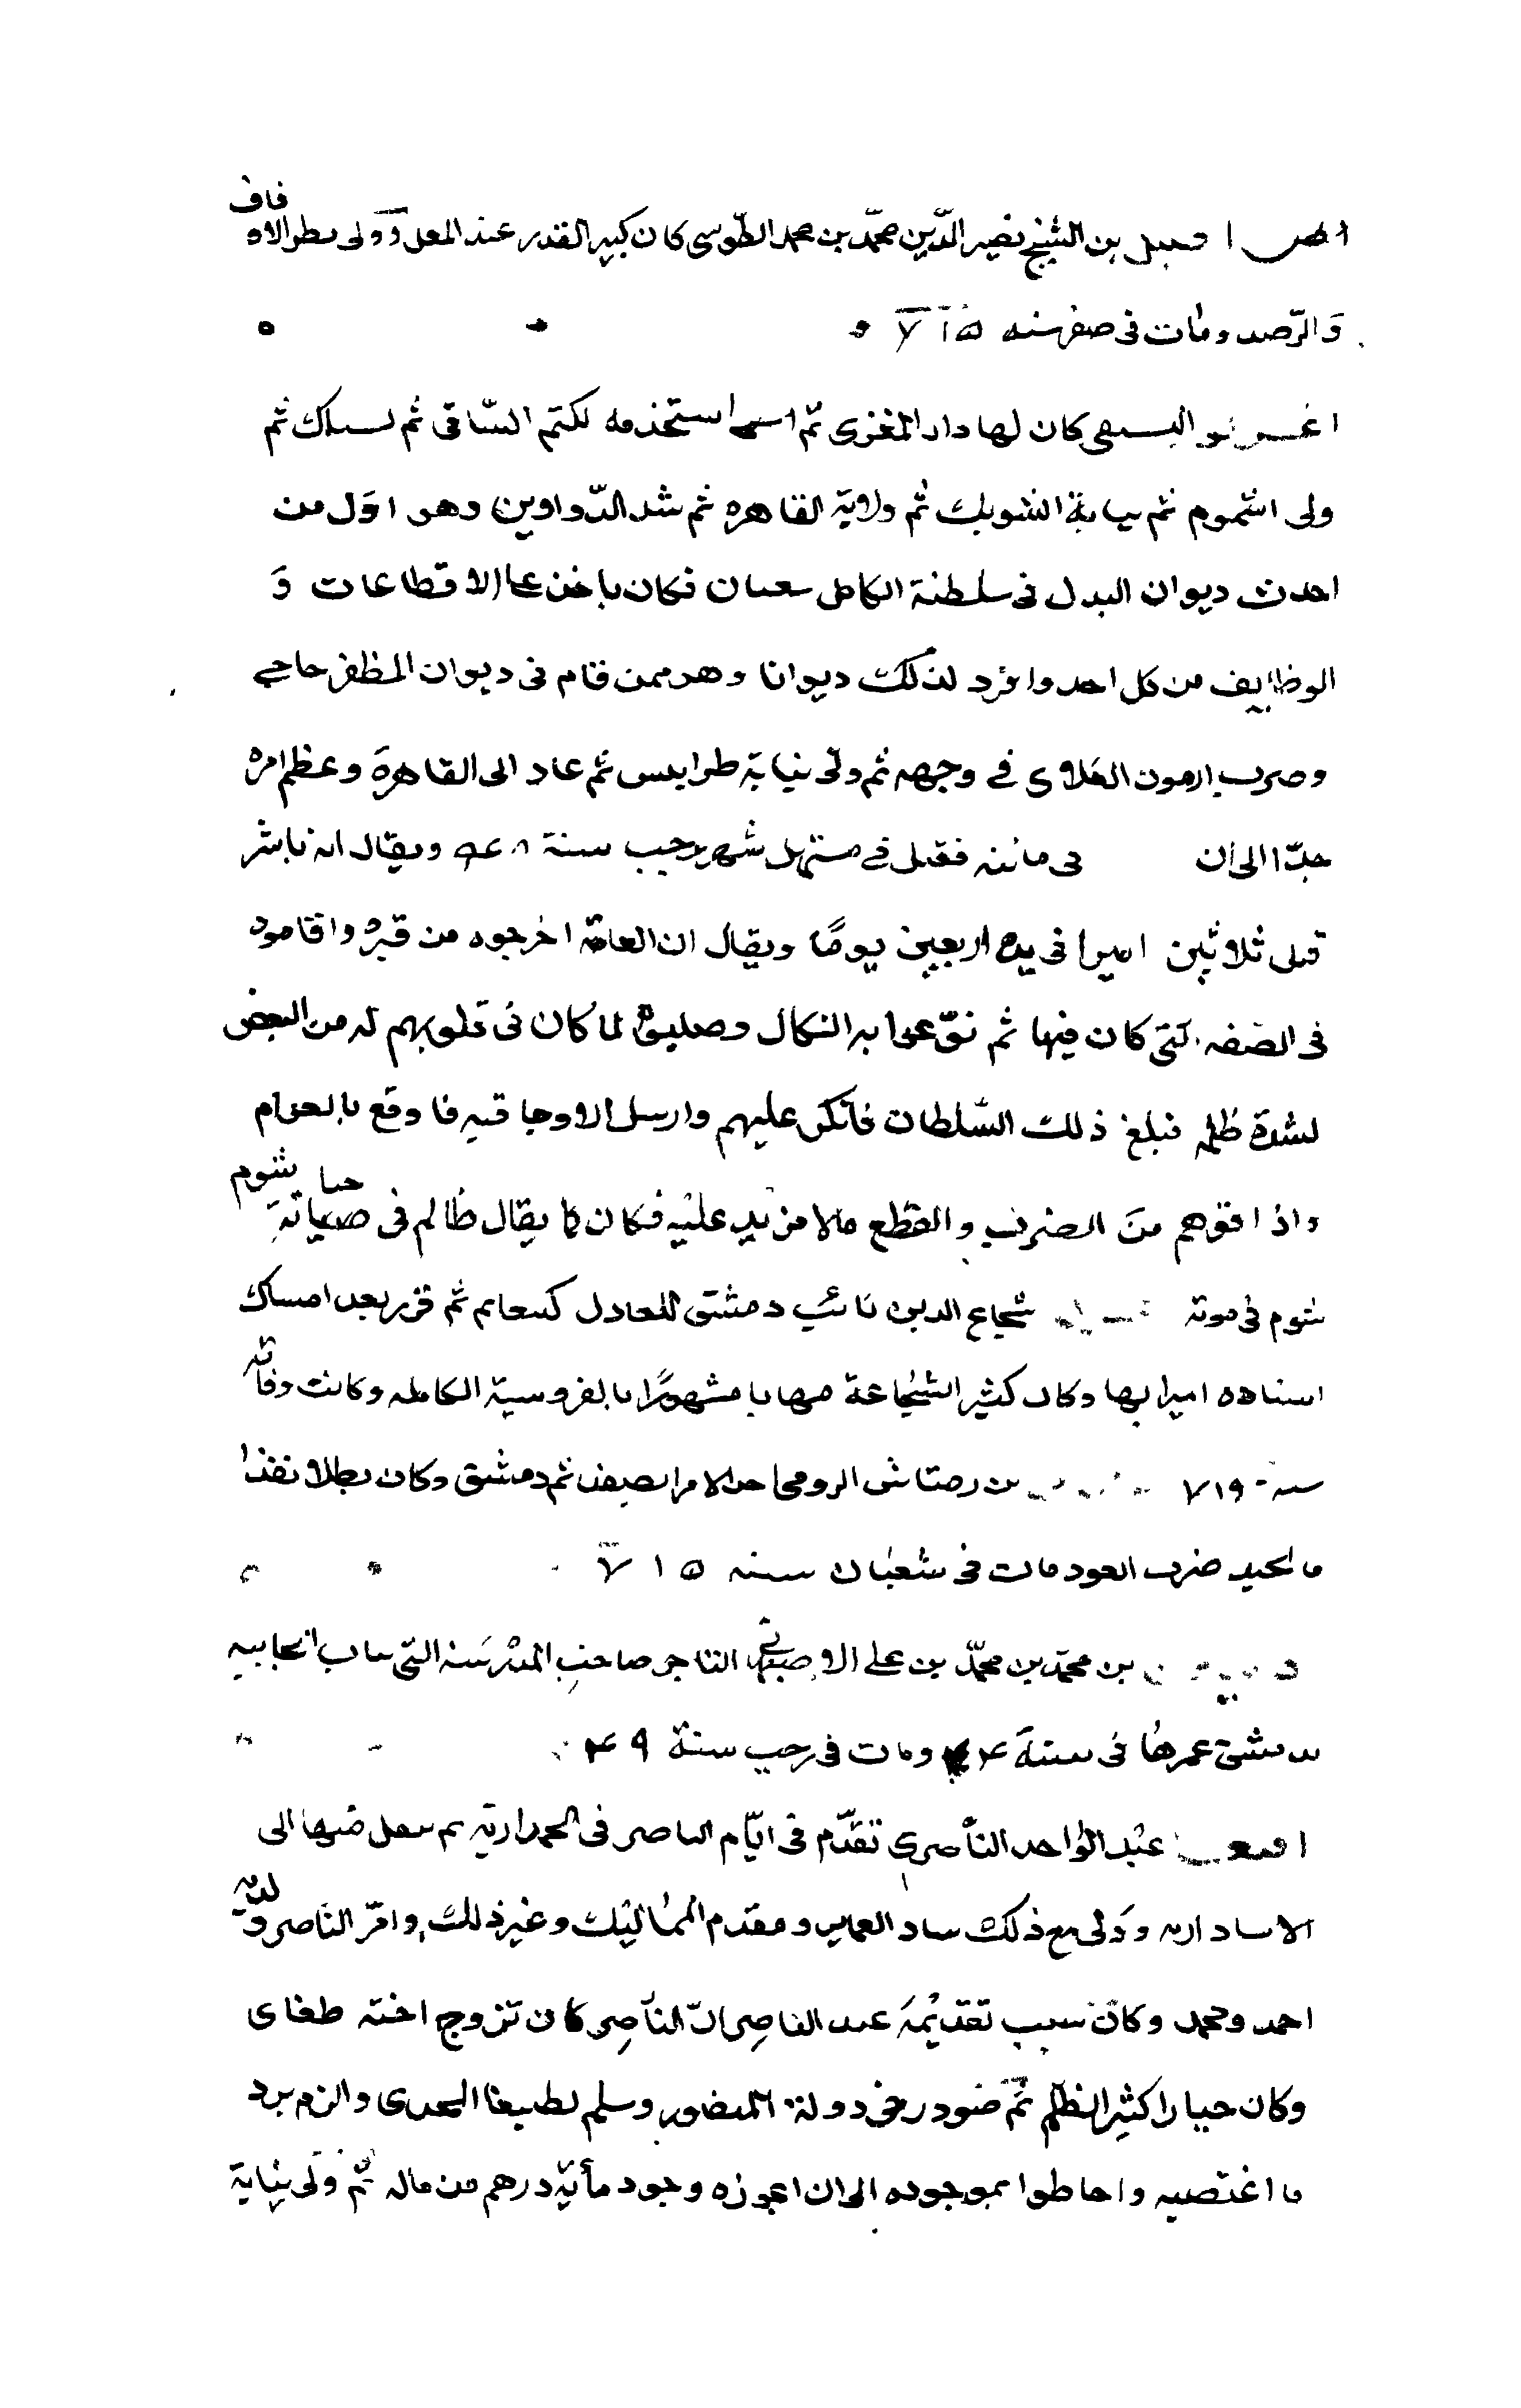 بن الشيخ نصير الدّين محمّد بن محمد الطّوسى كان كبير القدر عند المغل وَوَلى نظر الاوقاف
وَالرّصد ومات فى صفر سنه ٧١٥
كان لها دار المغزى ثمّ استخدمه لكتمر السّاقى ثم ثم
ولى اشموم ثم نيابة الشوبك ثم ولاية القاهره ثم شد الدّواوين وهو اوّل من
احدث ديوان البدل فى سلطنة الكامل سعبان فكان ياخذ على الاقطاعات وَ
الوظايف من كل احد وافرد لذلك ديوانا وهو ممن قام فى ديوان المظفر حاجى
وضرب ارغون العلاوى فى وجهه ثم ولى نيابة طرابلس ثم عاد الى القاهرة وعظم امره
جدّا الى ان فقتل فى مستهل شهر رجب سنة ويقال انه باشر
قتل ثلاثين اميرا فى مده اربعين يومًا ويقال ان العامّة اخرجوه من قبره واقاموه
فى الصفه التى كان فيها ثم نوّعوا به النكال وصلبوه لما كان فى قلوبهم له من البغض
لشدة ظلمه فبلغ ذلك السّلطان فانكر عليهم وارسل الاوجاقيه فاوقع بالعوام
واذاقوهم منَ الضرب والقطع مالا مزيد عليه فكان كما يقال ظالم فى حياته شوم
شوم فى موته شجاع الدين نائب دمشق للعادل كتبغا ثم قرر بعد امساك
استاذه اميرا بها وكان كثير الشجاعة مهابا مشهورًا بالفروسية الكامله وكانت وفاته
سنة ٧١٩ بن الرومى احد الامرا بصفد ثم دمشق وكان بطلا نقذا
ضرب العود مات فى شعبان سنه ٧١٥
بن محمّد بن محمّد بن على الاصبهانى التاجر صاحب المدرسة التى بباب الجابيه
بدمشق عمرها فى سنة ومات فى رجب سنة ٤٩
عبد الواحد النّاصرى تقدّم فى ايّام الناصر فى الجمدارية ثم منها الى
الاستادارية وَوَلى مع ذلك شاد العماير ومقدم المماليك وغير ذلك وامّر النّاصر ولديه
احمد ومحمد وكان سبب تقديمه عند الناصر انّ النّاصر كان تزوج اخته طغاى
وكان جبارا كثير الظلم ثمّ صودر فى دولة المنصور وسلم لطيبغا المجدى والزم برد
ما اغتصبه واحاطوا بموجوده الى ان اعوزه وجود مأية درهم من ماله ثم ولى نيابة